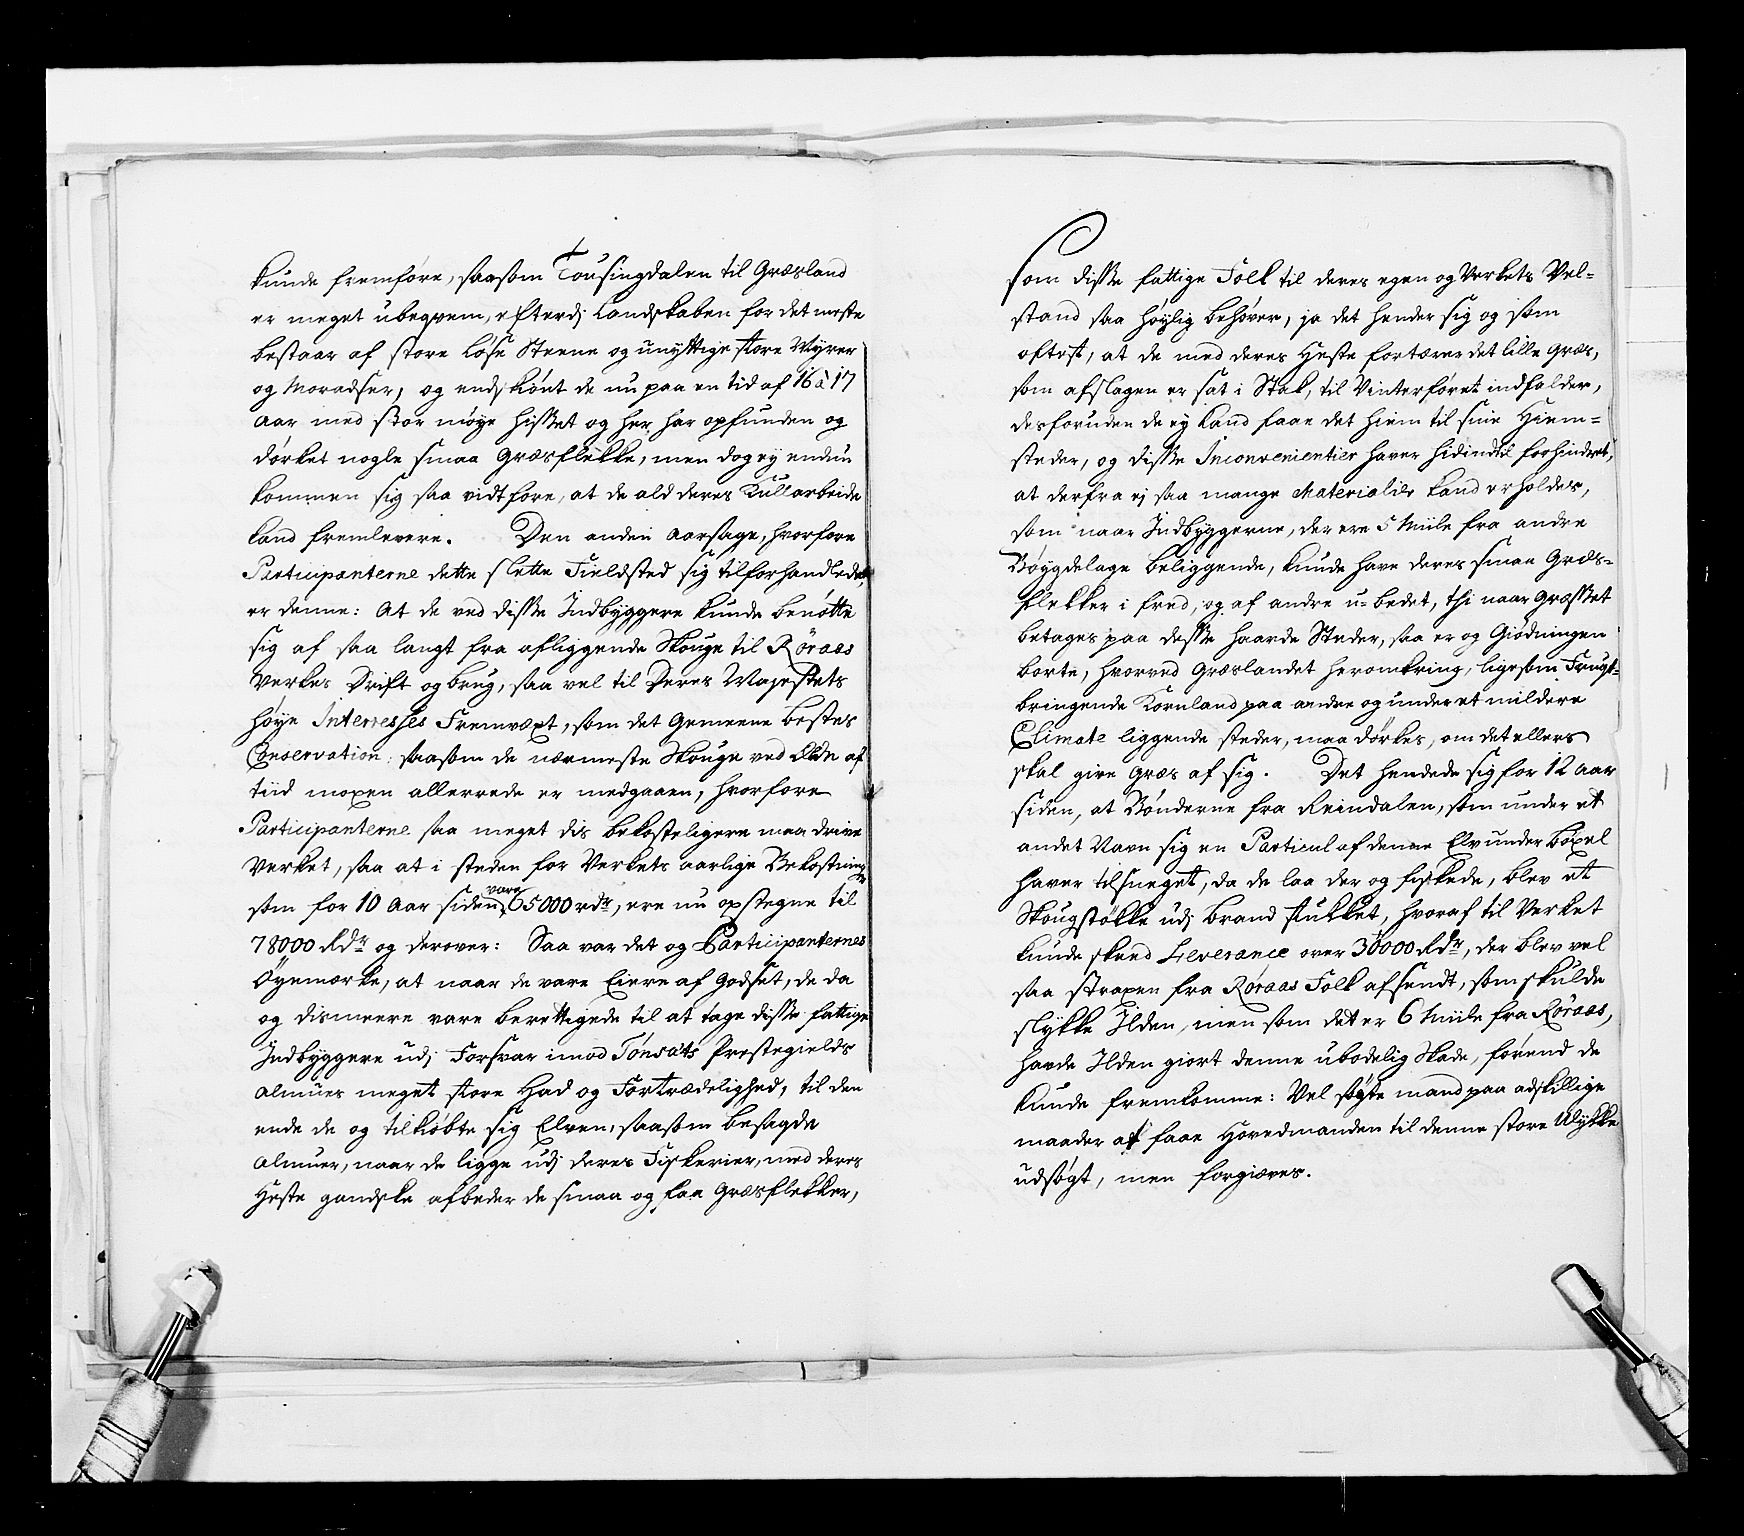 kunde fremføre, saasom Tousingdalen til Græsland
er meget ubeqvem, efterdj Landskaben for det meste
bestaar af store løse Steene og unyttige store Myrer
og Moradser, og endskiønt de nu paa en tid af 16 à 17
Aar med stor møye hisset og her har opfunden og
dørket nogle smaa Græsflekke, men dog ey endnu
kommen sig saa vidt fore, at de ald deres Kullarbeide
kand fremlevere. Den anden aarsage, hvorfore
Participanterne dette slette Fieldsted sig tilforhandlede
er denne: At de ved disse Indbyggere kunde benøtte
sig af saa langt fra afliggende Skouge til Røraas
Verkes Drift og brug, saa vel til Deres Mayestets
høye Interesses Fremvext, som det Gemeene bestes
Conservation, saasom de nærmeste Skouge ved Ilden af
tiid moxen allerrede er medgaaen, hvorfore
Participanterne saa meget dis bekosteligere maa drive
Verket, saa at i steden for Verkets aarlige Bekostning
som for 10 Aar siden vare 65000 rdr, ere nu opstegne til
78000 Rdr og derover: Saa var det og Participanternes
Øyemærke, at naar de vare Eiere af Godset, de da
og dismeere vare berettigede til at tage disse fattige
Indbyggere udj Forsvar imod Tønsæts Prestegields
Almues meget store Had og Fortrædelighed, til den
ende de og tilkiøbte sig Elven, saasom besagde
Almuer, naar de ligge udj deres Fiskerier, med deres
Heste gandske afbeder de smaa og faa Græsflekker,
som disse fattige Folk til deres egen og Verkets Vel-
stand saa høylig behøver, ja det hender sig og som
oftest, at de med deres Heste fortærer det lille Græs,
som afslagen er sat i Stak, til Vinterføret indfalder,
desforuden de ey kand faae det hiem til sine Hiem-
steder, og disse Inconvenientier haver hidindtil forhindret,
at derfra ej saa mange Materialier kand erholdes,
som naar Indbyggerne, der ere 5 Miile fra andre
Bøygdelage beliggende, kunde have deres smaa Græs-
flekker i fred, og af andre u-bedet, thi naar Græsset
betages paa desse haarde Steder, saa er og Giødningen
borte, hvorved Græslandet heromkring, ligesom Frugt-
bringende Kornland paa andre og under et mildere
Climate liggende steder, maa dørkes, om det ellers
skal give Græs af sig. Det hendede sig for 12 Aar
siden, at Bønderne fra Reindalen, som under et
andet Navn sig en Particul af denne Elv under Bøxel
haver tilsneget, da de laa der og fiskede, blev et
Skougstøkke udj brand stukket, hvoraf til Verket
kunde skeed Leverance over 30000 Rdr, der blev vel
saa straxen fra Røraas Folk afsendt, som skulde
slykke Ilden, men som det er 6 Miile fra Røraas,
havde Ilden giort denne ubodelig Skade, førend de
kunde fremkomme: Vel søgte mand paa adskillige
maader at faae Hovedmanden til denne store Ulykke
udsøgt, men forgiæves.